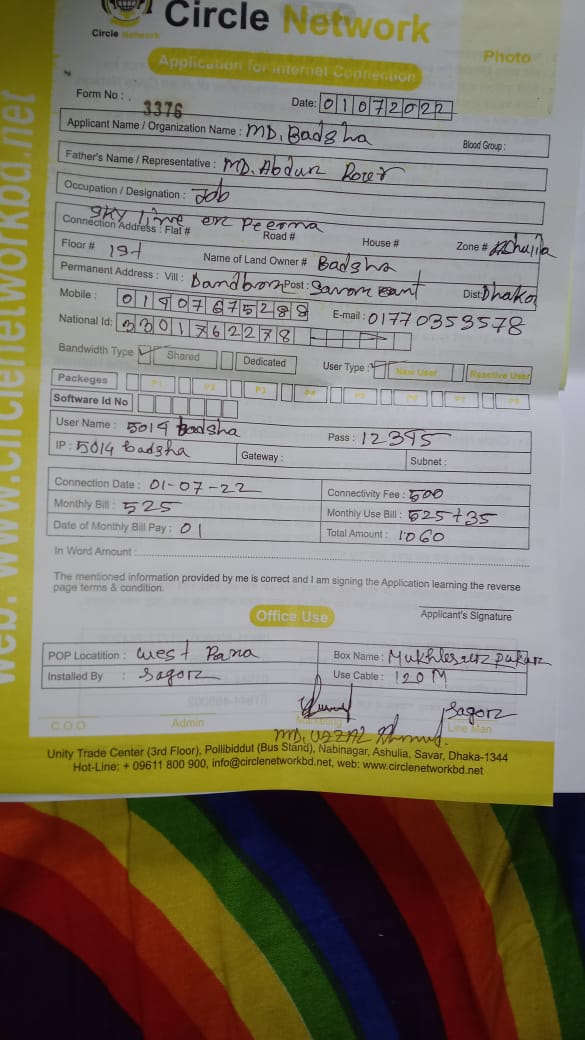 Circle Network
Circle Network
Application for Internet Connection
Photo
Form No : 3376
Date: 01072022
Applicant Name / Organization Name : MD. Badsha
Blood Group :
Father's Name / Representative : MD. Abdur
Occupation / Designation : Job
Sky line
Connection Address : Flat #
Road #
House #
Zone #
Floor # 1st
Name of Land Owner # Badsha
Permanent Address : Vill :
Post :
Dist: Dhaka
Mobile :
E-mail : 01770353578
National Id: 3301762278
Bandwidth Type
Shared
Dedicated
User Type :
New User
Reactive User
Packeges
P1
P2
P3
P4
P5
P6
P7
P8
Software Id No
User Name : 5014 badsha
Pass : 12345
IP : 5014 badsha
Gateway :
Subnet :
Connection Date : 01-07-22
Connectivity Fee : 500
Monthly Bill : 525
Monthly Use Bill : 525+35
Date of Monthly Bill Pay : 01
Total Amount : 1060
In Word Amount :
The mentioned information provided by me is correct and I am signing the Application learning the reverse
page terms & condition.
Applicant's Signature
Office Use
POP Locatition : West Para
Box Name :
Installed By : Sagor
Use Cable : 120 M
Sagor
C O O
Admin
Marketing
Line Man
Unity Trade Center (3rd Floor), Pollibiddut (Bus Stand), Nabinagar, Ashulia, Savar, Dhaka-1344
Hot-Line: + 09611 800 900, info@circlenetworkbd.net, web: www.circlenetworkbd.net
web: www.circlenetworkbd.net